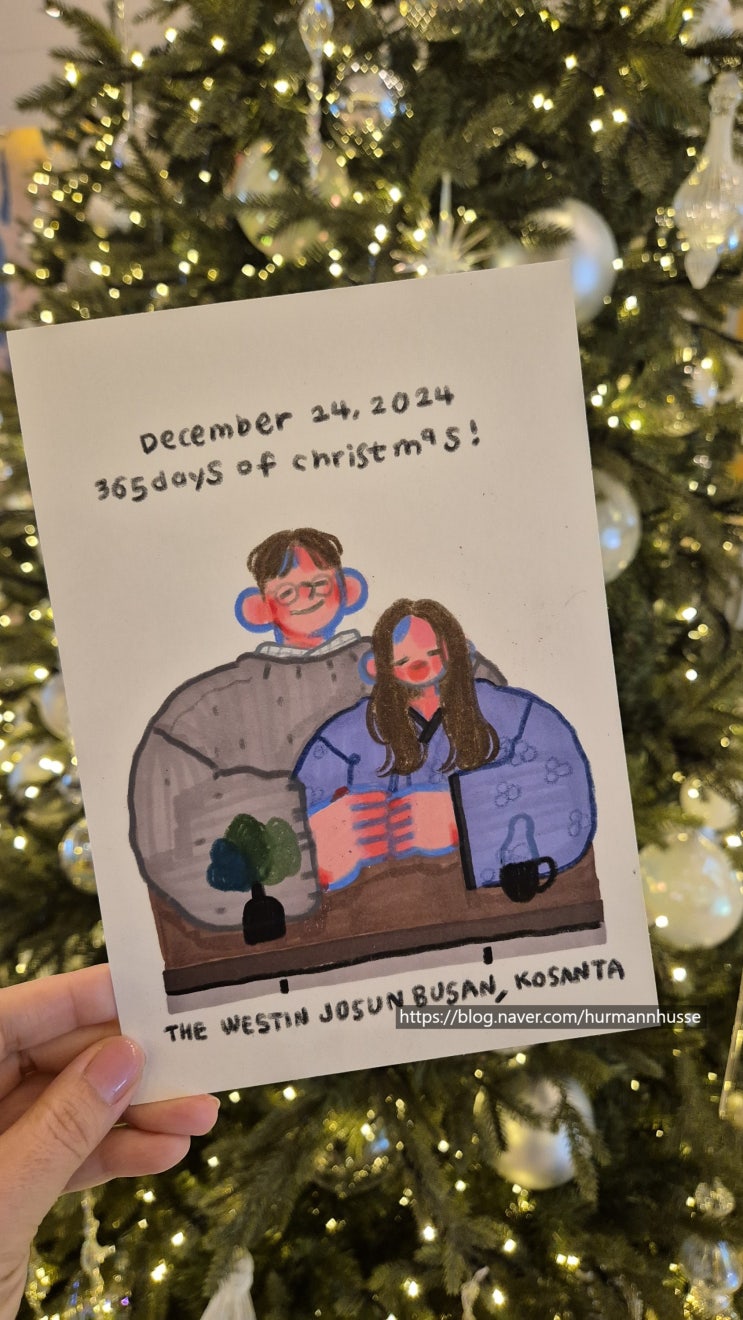 December 24, 2024
365days of christmas!
THE WESTIN JOSUN BUSAN, KOSANTA
https://blog.naver.com/hurmannhusse